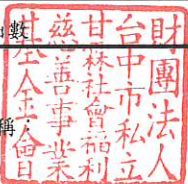 財團法人
台中市私立
甘霖社會福利
慈善事業
基金會
數
稱